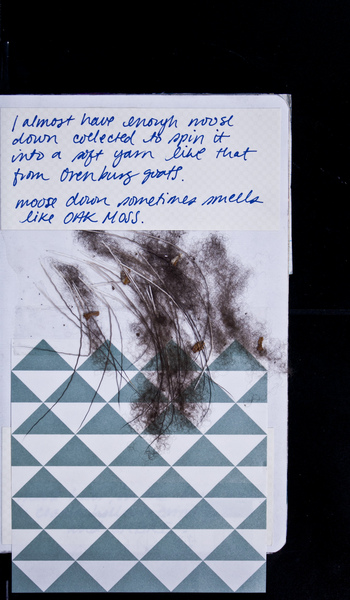 I almost have enough moose
down collected to spin it
into a soft yarn like that
from Orenburg goats.
moose down sometimes smells
like OAK MOSS.